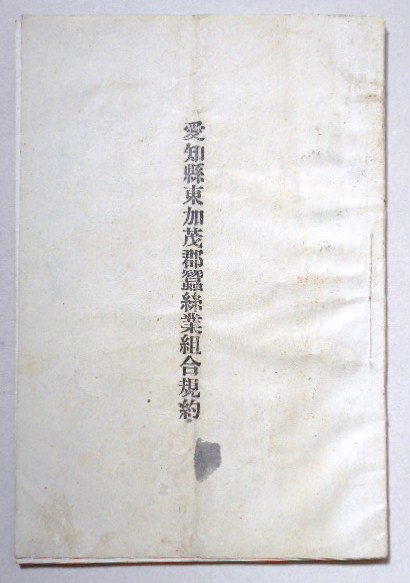 愛知縣東加茂郡蠶絲業組合規約